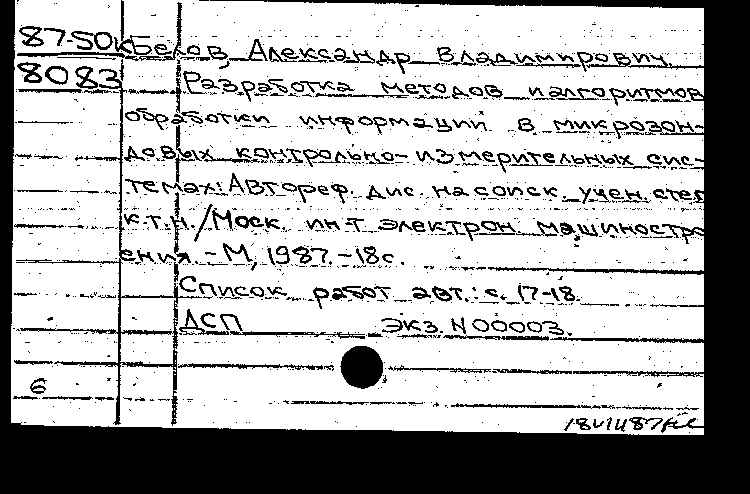 87-50к Белов, Александр Владимирович.
8083 Разработка методов и алгоритмов
обработки информации в микрозон-
довых контрольно-измерительных сис-
темах: Автореф. дис. на соиск. учен. степ
к.т.н. / Моск. ин-т электрон. машиностро
ения. - М, 1987. - 18 с.
Список работ авт.: с. 17-18.
ДСП экз. N 00003.
6